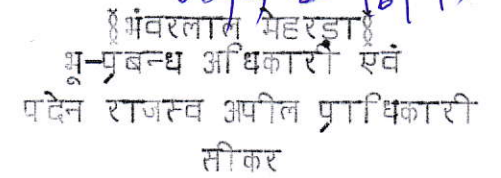 §भंवरलाल मेहरड़ा§
भू-प्रबन्ध अधिकारी एवं
पदेन राजस्व अपील प्राधिकारी
सीकर